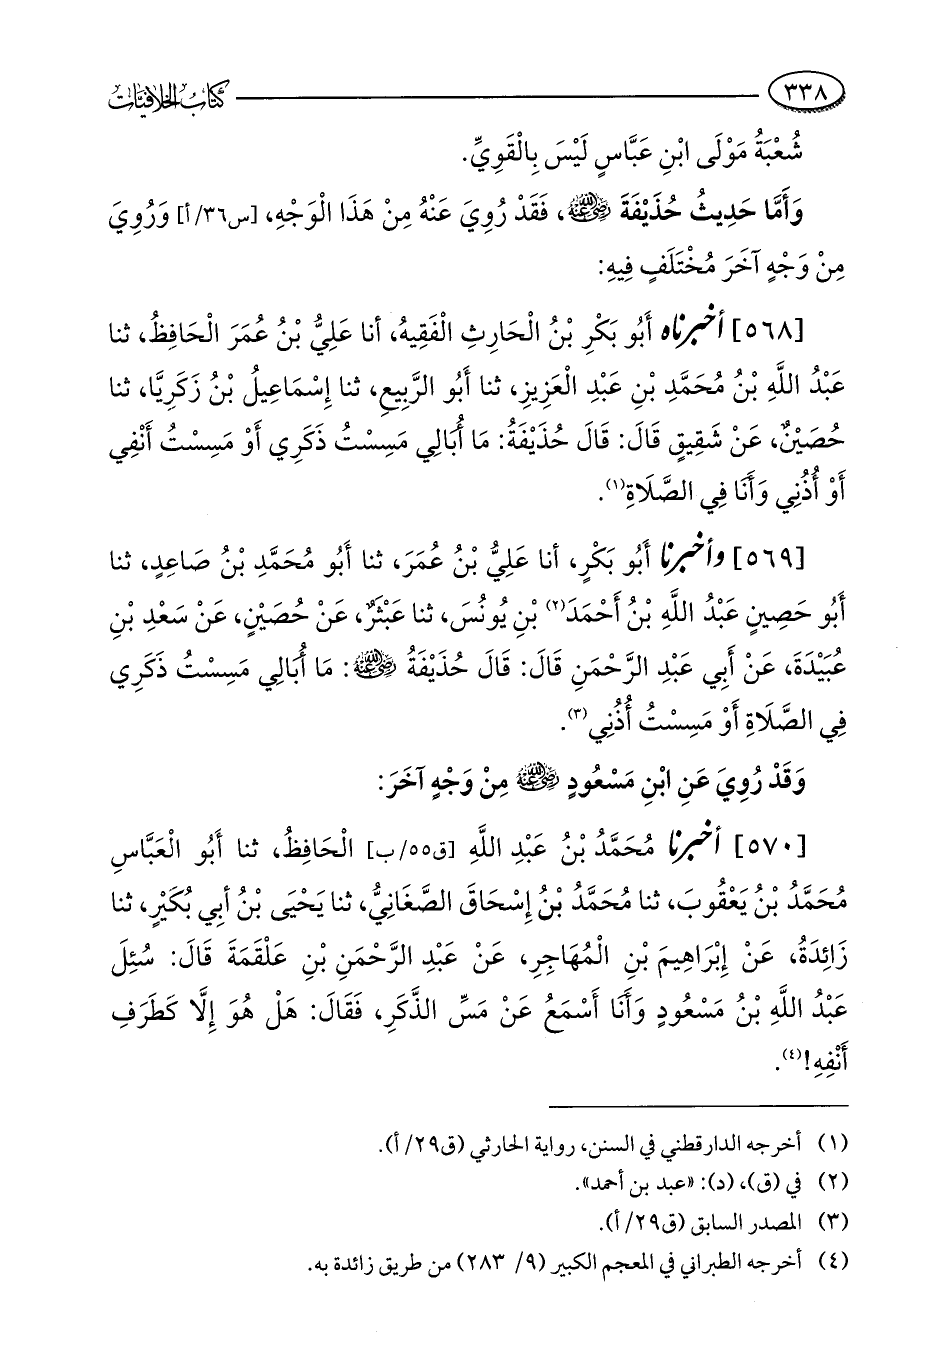 ٣٣٨ كتاب الخلافيات
شُعْبَةُ مَوْلَى ابْنِ عَبَّاسٍ لَيْسَ بِالْقَوِيِّ.
وَأَمَّا حَدِيثُ حُذَيْفَةَ رَضِيَ اللَّهُ عَنْهُ، فَقَدْ رُوِيَ عَنْهُ مِنْ هَذَا الْوَجْهِ، [س٣٦/أ] وَرُوِيَ
مِنْ وَجْهٍ آخَرَ مُخْتَلَفٍ فِيهِ:
[٥٦٨] أخبرناه أَبُو بَكْرِ بْنُ الْحَارِثِ الْفَقِيهُ، أنا عَلِيُّ بْنُ عُمَرَ الْحَافِظُ، ثنا
عَبْدُ اللَّهِ بْنُ مُحَمَّدِ بْنِ عَبْدِ الْعَزِيزِ، ثنا أَبُو الرَّبِيعِ، ثنا إِسْمَاعِيلُ بْنُ زَكَرِيَّا، ثنا
حُصَيْنٌ، عَنْ شَقِيقٍ قَالَ: قَالَ حُذَيْفَةُ: مَا أُبَالِي مَسِسْتُ ذَكَرِي أَوْ مَسِسْتُ أَنْفِي
أَوْ أُذُنِي وَأَنَا فِي الصَّلَاةِ(١).
[٥٦٩] وأخبرنا أَبُو بَكْرٍ، أنا عَلِيُّ بْنُ عُمَرَ، ثنا أَبُو مُحَمَّدِ بْنُ صَاعِدٍ، ثنا
أَبُو حَصِينٍ عَبْدُ اللَّهِ بْنُ أَحْمَدَ(٢) بْنِ يُونُسَ، ثنا عَبْثَرٌ، عَنْ حُصَيْنٍ، عَنْ سَعْدِ بْنِ
عُبَيْدَةَ، عَنْ أَبِي عَبْدِ الرَّحْمَنِ قَالَ: قَالَ حُذَيْفَةُ رَضِيَ اللَّهُ عَنْهُ: مَا أُبَالِي مَسِسْتُ ذَكَرِي
فِي الصَّلَاةِ أَوْ مَسِسْتُ أُذُنِي(٣).
وَقَدْ رُوِيَ عَنِ ابْنِ مَسْعُودٍ رَضِيَ اللَّهُ عَنْهُ مِنْ وَجْهٍ آخَرَ:
[٥٧٠] أخبرنا مُحَمَّدُ بْنُ عَبْدِ اللَّهِ [ق٥٥/ب] الْحَافِظُ، ثنا أَبُو الْعَبَّاسِ
مُحَمَّدُ بْنُ يَعْقُوبَ، ثنا مُحَمَّدُ بْنُ إِسْحَاقَ الصَّغَانِيُّ، ثنا يَحْيَى بْنُ أَبِي بُكَيْرٍ، ثنا
زَائِدَةُ، عَنْ إِبْرَاهِيمَ بْنِ الْمُهَاجِرِ، عَنْ عَبْدِ الرَّحْمَنِ بْنِ عَلْقَمَةَ قَالَ: سُئِلَ
عَبْدُ اللَّهِ بْنُ مَسْعُودٍ وَأَنَا أَسْمَعُ عَنْ مَسِّ الذَّكَرِ، فَقَالَ: هَلْ هُوَ إِلَّا كَطَرَفِ
أَنْفِهِ!(٤).
(١) أخرجه الدارقطني في السنن، رواية الحارثي (ق٢٩/أ).
(٢) في (ق)، (د): «عبد بن أحمد».
(٣) المصدر السابق (ق٢٩/أ).
(٤) أخرجه الطبراني في المعجم الكبير (٩/ ٢٨٣) من طريق زائدة به.